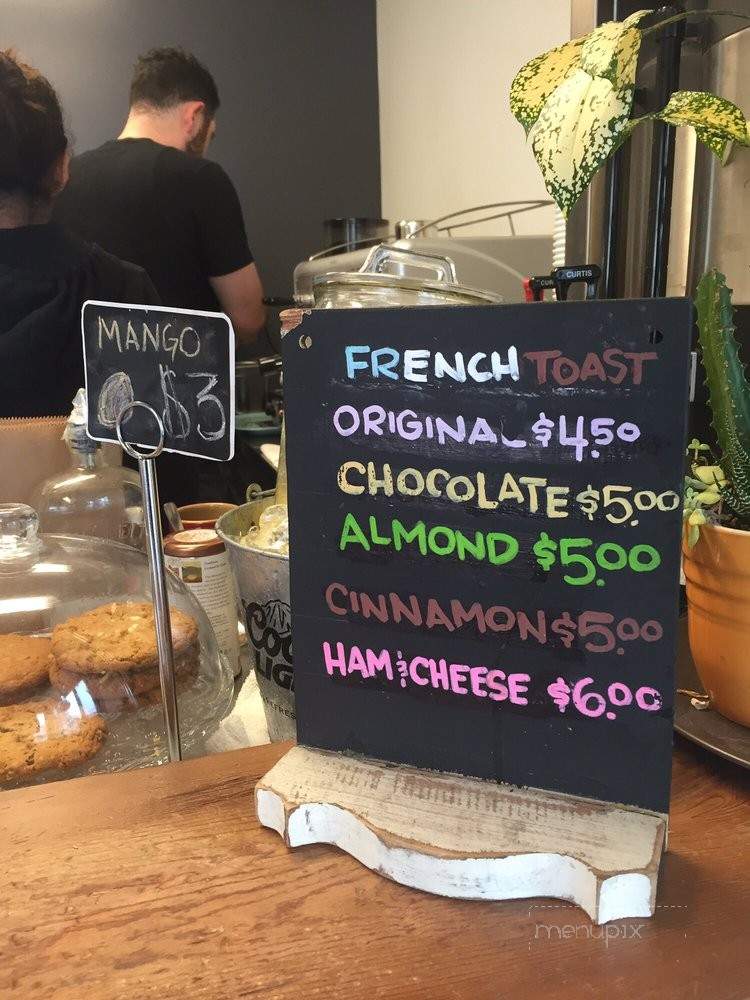 CURTIS
MANGO
$3
FRENCH TOAST
ORIGINAL $4.50
CHOCOLATE $5.00
ALMOND $5.00
CINNAMON $5.00
HAM & CHEESE $6.00
menupix